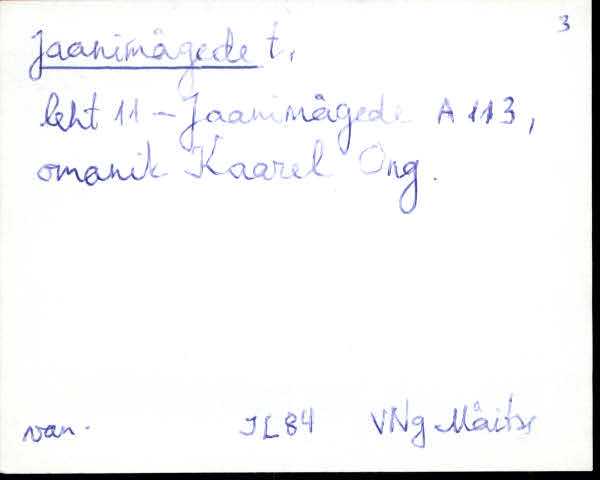 3
Jaanimägede t.
leht 11 - Jaanimägede A 113,
omanik Kaarel Ong.
van. JL84 VNg Mäitse